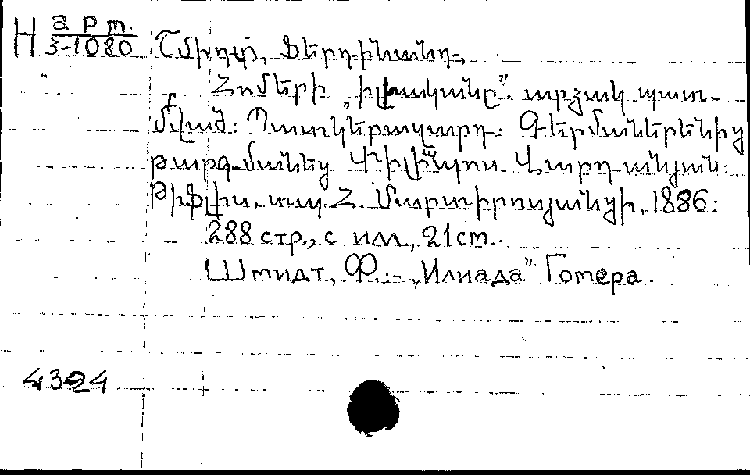 Н арт.
3-1080
Շմիդտ, Ֆերդինանդ.
Հոմերի „Իլիականը" արձակ պատ-
մված: Պատկերազարդ: Գերմաներենից
թարգմանեց Փիլիպպոս Վարդանյան:
Թիֆլիս, տպ. Հ. Մարտիրոսյանցի, 1886:
288 стр., с илл., 21 см.
Шмидт, Ф. „Илиада" Гомера.
4324